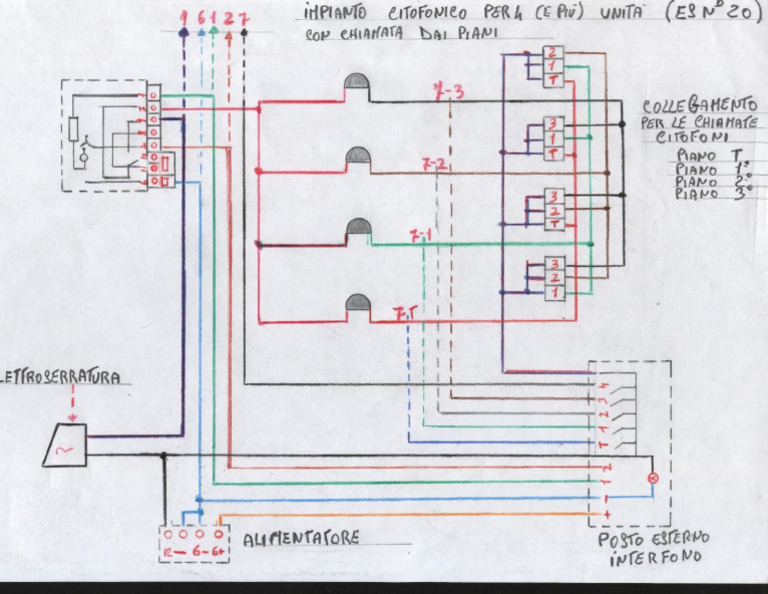 9 6 1 2 7
IMPIANTO CITOFONICO PER 4 (E PIÙ) UNITÀ (ES N° 20)
CON CHIAMATA DAI PIANI
2
1
T
7-3
3
1
T
COLLEGAMENTO
PER LE CHIAMATE
CITOFONI
PIANO T
PIANO 1°
PIANO 2°
PIANO 3°
7-2
3
2
T
7-1
3
2
1
7-T
LETTROSERRATURA
~
4
3
2
1
T
2
1
-
+
12 - 6 - 6+
ALIMENTATORE
POSTO ESTERNO
INTERFONO